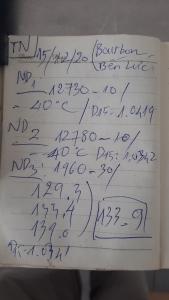 TN 15/12/20 (Bourbon.
Ben Luc)
ND1 12730-10/
-40°C / D15=1.0419
ND2 12780-10/
-40°C D15:1.0342
ND3: 1960-30/
129.3
133.4
139.0
133.9
D15=1.0341